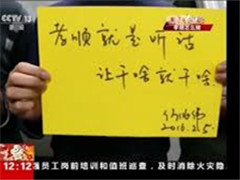 CCTV 13
新闻
孝顺就是听话
让干啥就干啥.
2016.2.5.
12:12
强员工岗前培训和值班巡查，及时消除火灾隐